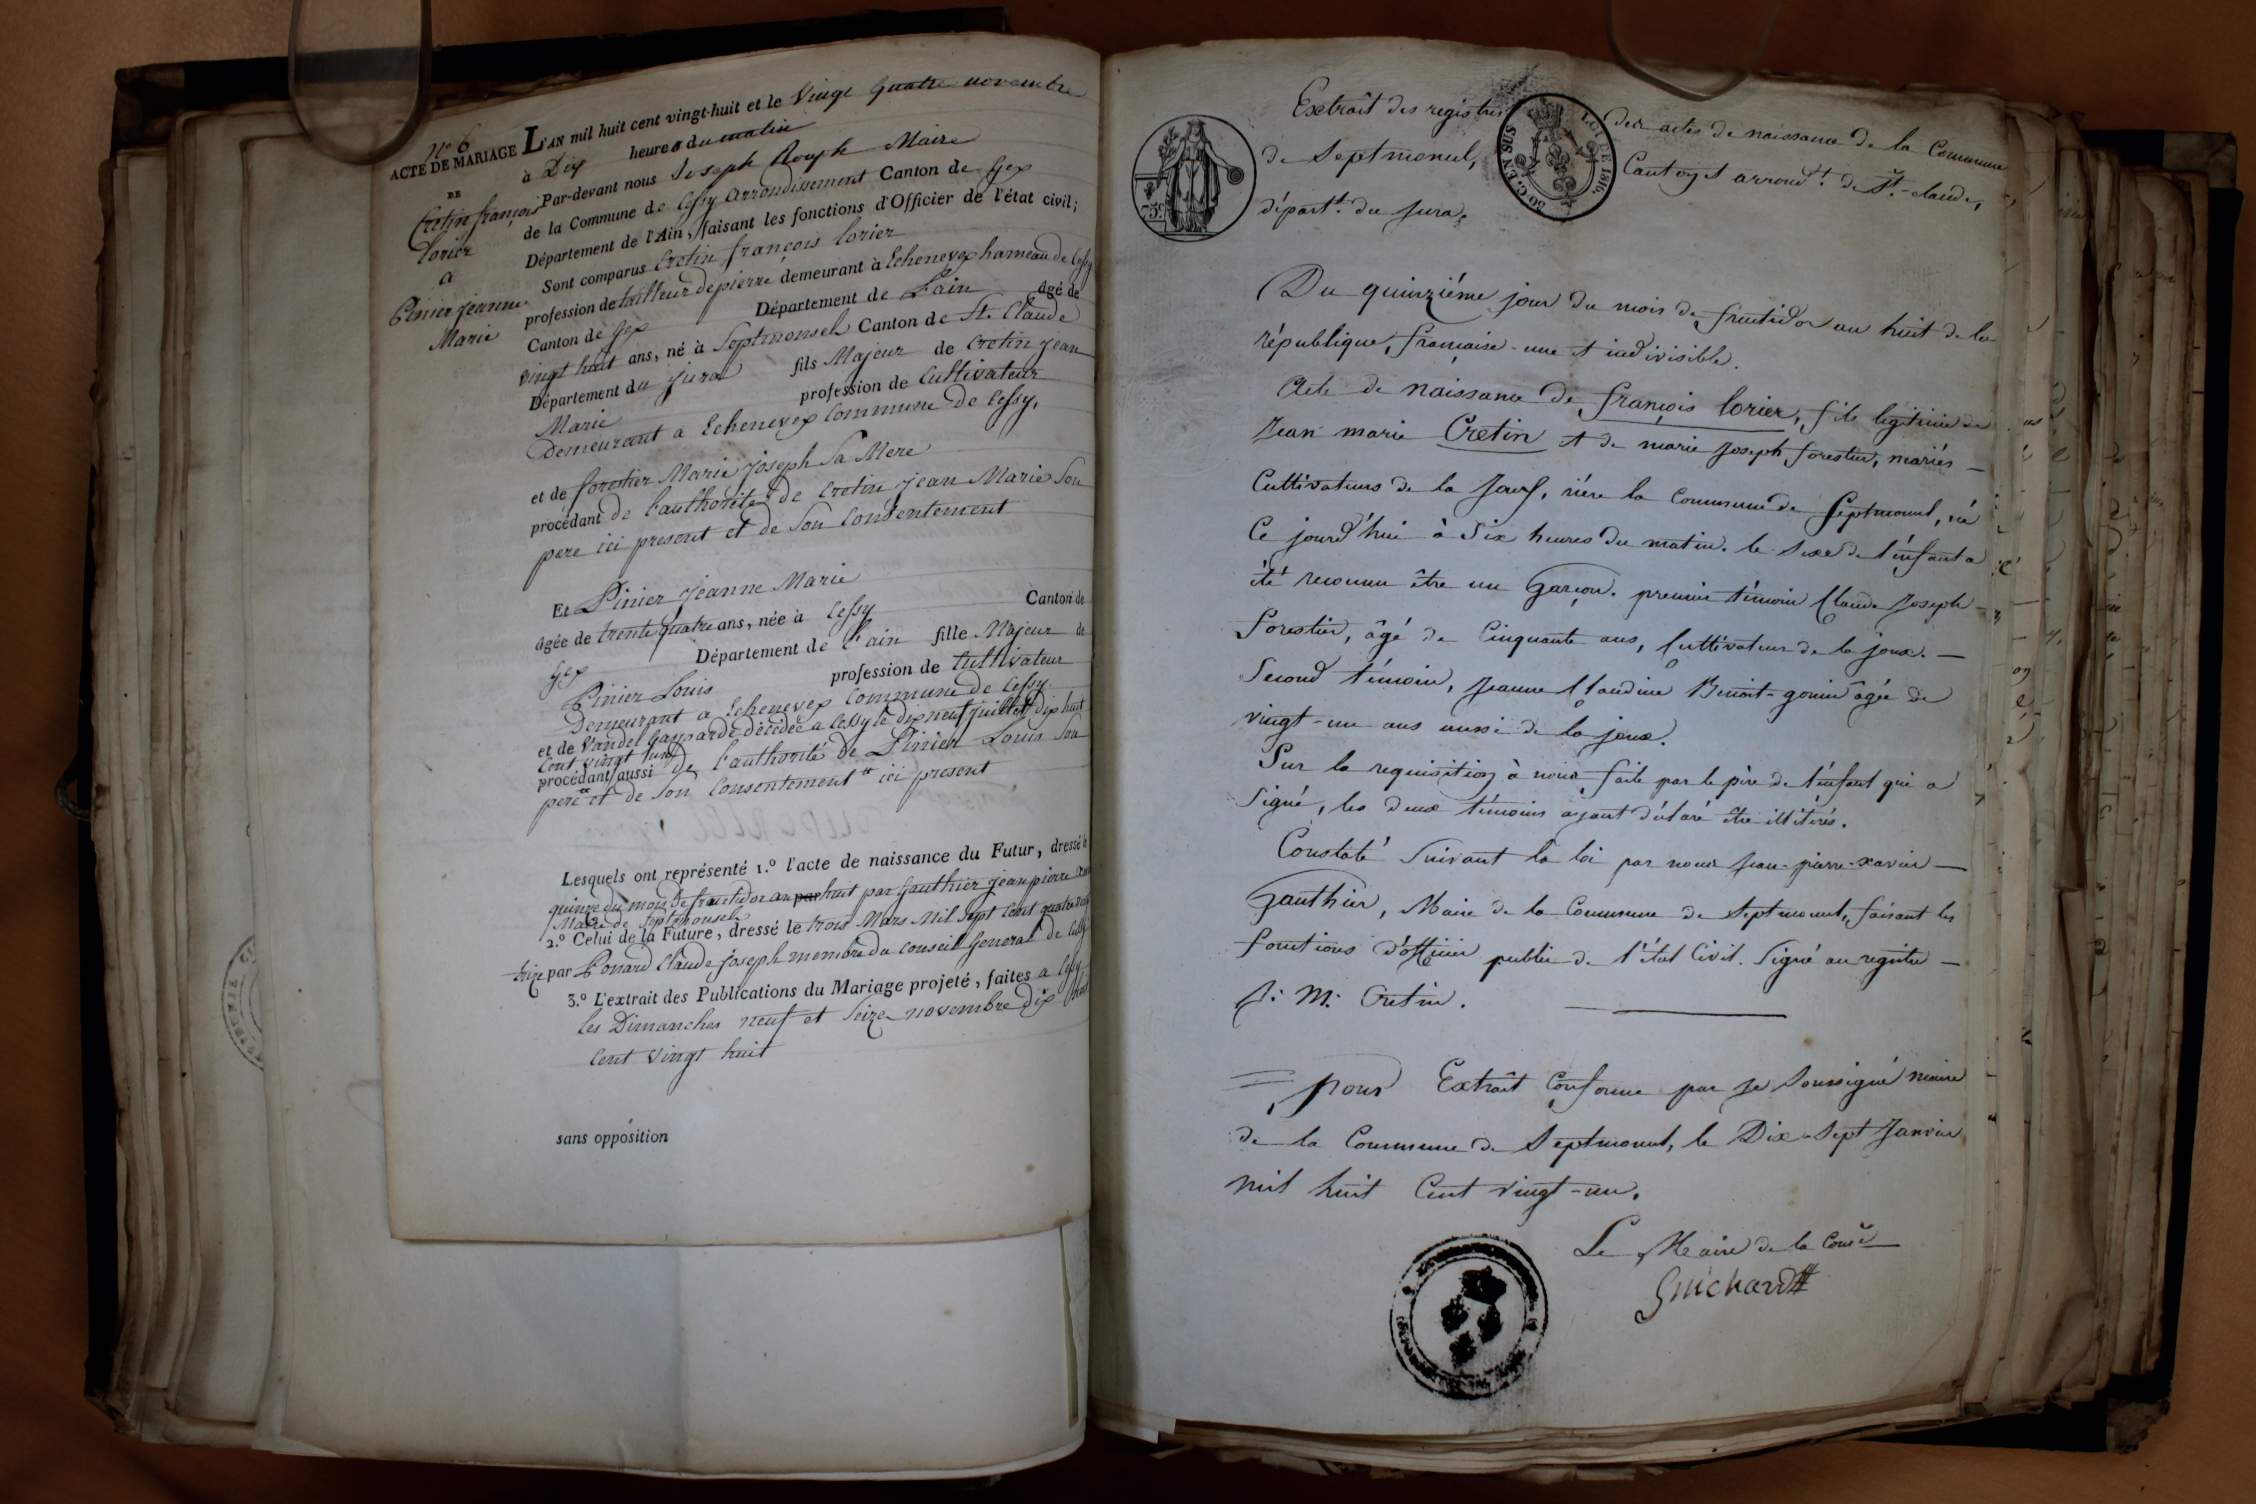 N° 6
ACTE DE MARIAGE
DE
Cretin françois
lorier
a
Pinier jeanne
Marie
L'AN mil huit cent vingt-huit et le Vingt quatre novembre
à Dix heures du matin
Par-devant nous Joseph Rouph Maire
de la Commune de Cessy arrondissement Canton de Gex
Département de l'Ain, faisant les fonctions d'Officier de l'état civil;
Sont comparus Cretin françois lorier
profession de tailleur de pierre demeurant à Echenevex hameau de Cessy
Canton de Gex Département de L'ain âgé de
vingt huit ans, né à Septmonsel Canton de St. Claude
Département du jura fils Majeur de Cretin jean
Marie profession de Cultivateur
demeurant a Echenevex Commune de Cessy,
et de forestier Marie joseph Sa Mere
procédant de l'authorité de Cretin jean Marie Son
pere ici present et de Son Consentement
Et Pinier jeanne Marie
âgée de trente quatre ans, née à Cessy Canton de
Gex Département de l'ain fille Majeur de
Pinier Louis profession de Cultivateur
Demeurant a Echenevex Commune de Cessy
et de Vandel Gasparde décédée a Cessy le dix neuf juillet dix huit
Cent vingt
procédant aussi de l'authorité de Pinier Louis Son
pere et de Son Consentement ici present
Lesquels ont représenté 1.° l'acte de naissance du Futur, dressé le
quinze du mois de fructidor an par huit par Gauthier jean pierre
Maire de Septmonsel
2.° Celui de la Future, dressé le trois Mars Mil Sept Cent quatre
treize par Ponard Claude joseph membre du Conseil General de Cessy
3.° L'extrait des Publications du Mariage projeté, faites a Cessy
les Dimanches neuf et Seize novembre dix huit
Cent vingt huit
sans opposition
Extrait des registres des actes de naissance de la Commune
de Septmoncel, Canton et arrond.t de St.-claude,
départ.t du Jura.
75c
30 C. EN SUS
LOI DE 1816
Du quinziéme jour du mois de fructidor an huit de la
république, française une et indivisible.
Acte de naissance de françois lorier, fils legitime de
Jean marie Cretin et de marie Joseph forestier, mariés
Cultivateurs de la Joux, rière la Commune de Septmoncel, né
Ce jourd'hui à Six heures du matin. le Sexe de l'enfant a
été reconnu être un Garçon. premier témoin Claude Joseph
forestier, âgé de Cinquante ans, Cultivateur de la joux.
Second témoin, Jeanne Claudine Benoit-gonin âgée de
vingt-un ans aussi de la joux.
Sur la requisition à nous faite par le père de l'enfant qui a
Signé, les deux témoins ayant déclaré être illitérés.
Constaté Suivant la loi par nous Jean-pierre-xavier
Gauthier, Maire de la Commune de Septmoncel, faisant les
fonctions d'officier public de l'état Civil. Signé au registre
J: M: Cretin.
pour Extrait Conforme par je Soussigné maire
de la Commune de Septmoncel, le Dix-Sept Janvier
mil huit Cent vingt-un.
Le Maire de la Coune
Guichard